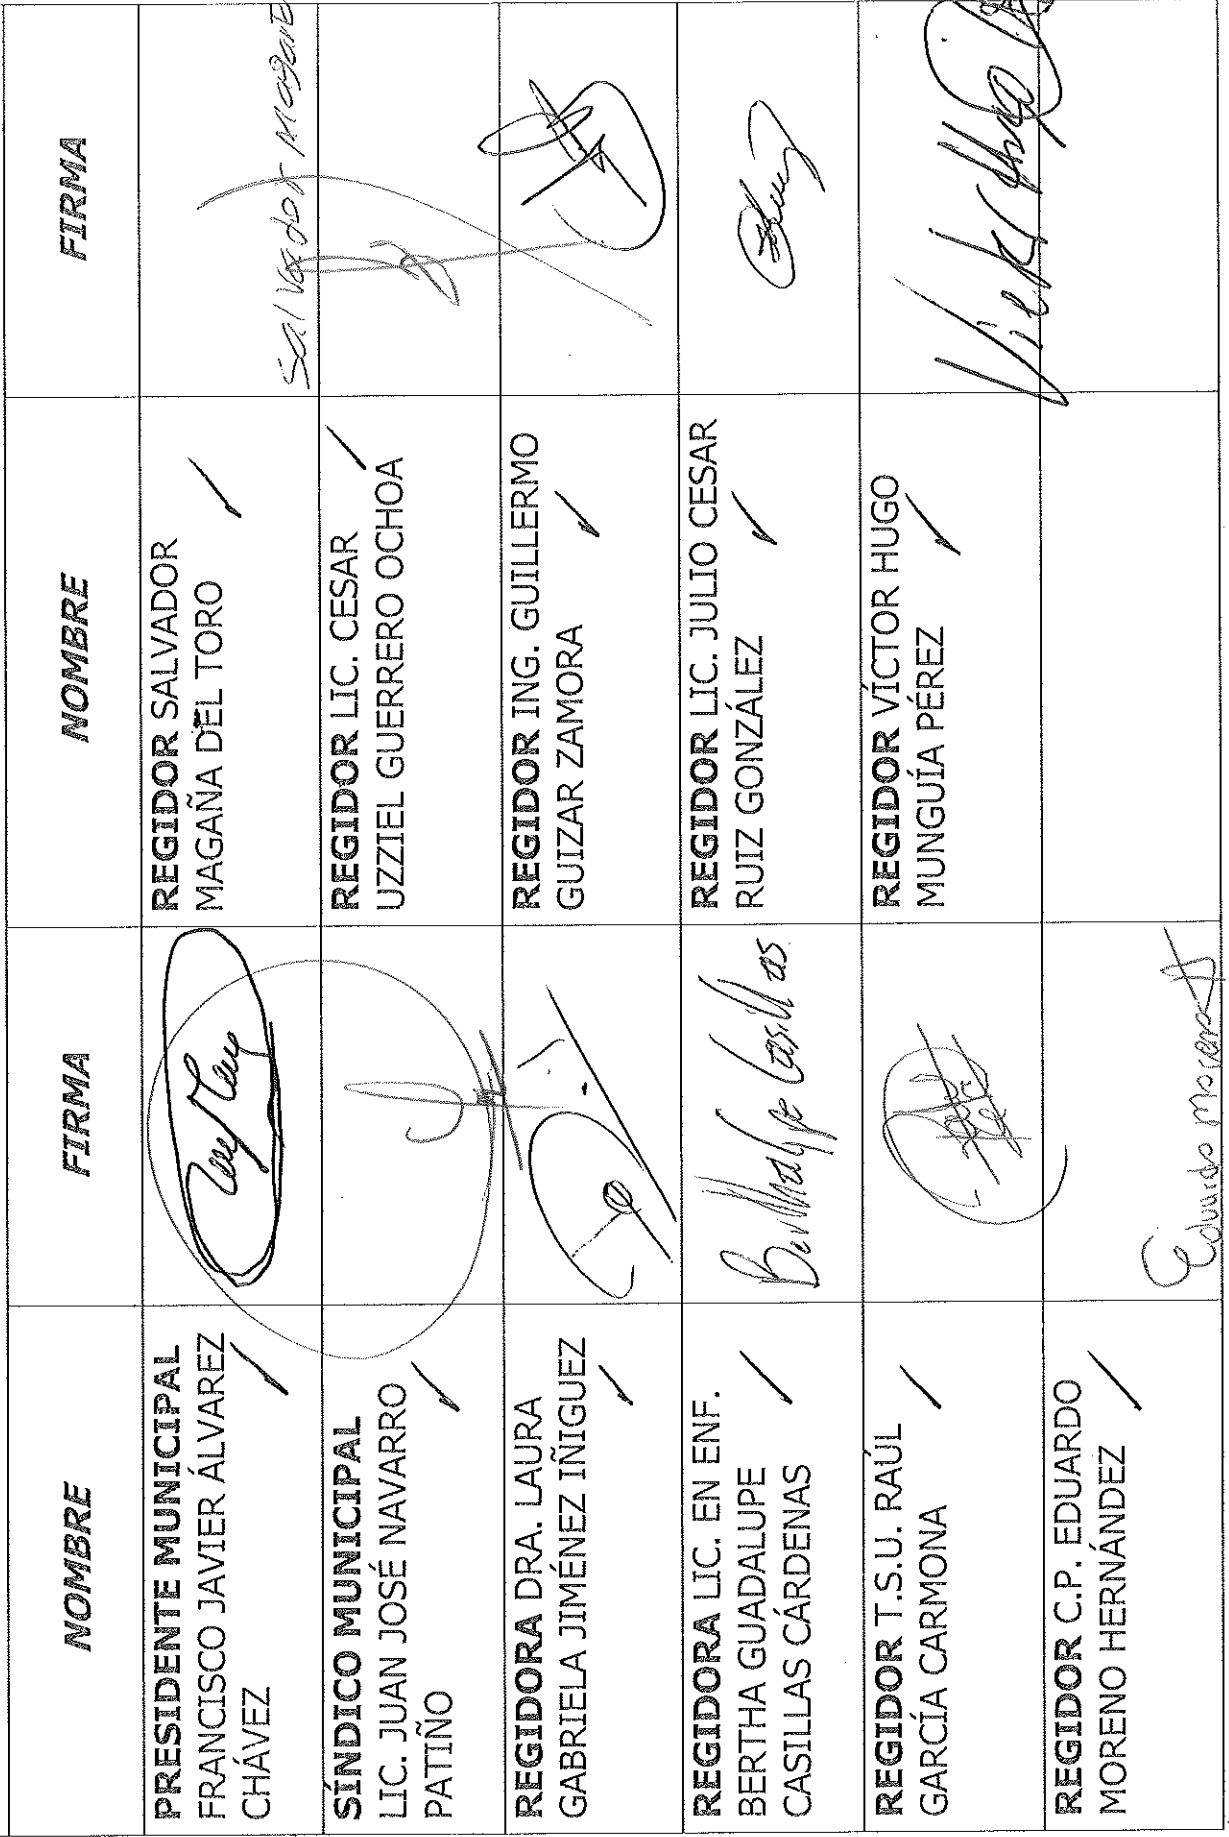 NOMBRE FIRMA NOMBRE FIRMA
PRESIDENTE MUNICIPAL
FRANCISCO JAVIER ÁLVAREZ
CHÁVEZ
REGIDOR SALVADOR
MAGAÑA DEL TORO
Salvador Magaña
SÍNDICO MUNICIPAL
LIC. JUAN JOSÉ NAVARRO
PATIÑO
REGIDOR LIC. CESAR
UZZIEL GUERRERO OCHOA
REGIDORA DRA. LAURA
GABRIELA JIMÉNEZ IÑIGUEZ
REGIDOR ING. GUILLERMO
GUIZAR ZAMORA
REGIDORA LIC. EN ENF.
BERTHA GUADALUPE
CASILLAS CÁRDENAS
Casillas
REGIDOR LIC. JULIO CESAR
RUIZ GONZÁLEZ
REGIDOR T.S.U. RAÚL
GARCÍA CARMONA
REGIDOR VÍCTOR HUGO
MUNGUÍA PÉREZ
Victor Hugo
REGIDOR C.P. EDUARDO
MORENO HERNÁNDEZ
Eduardo Moreno H